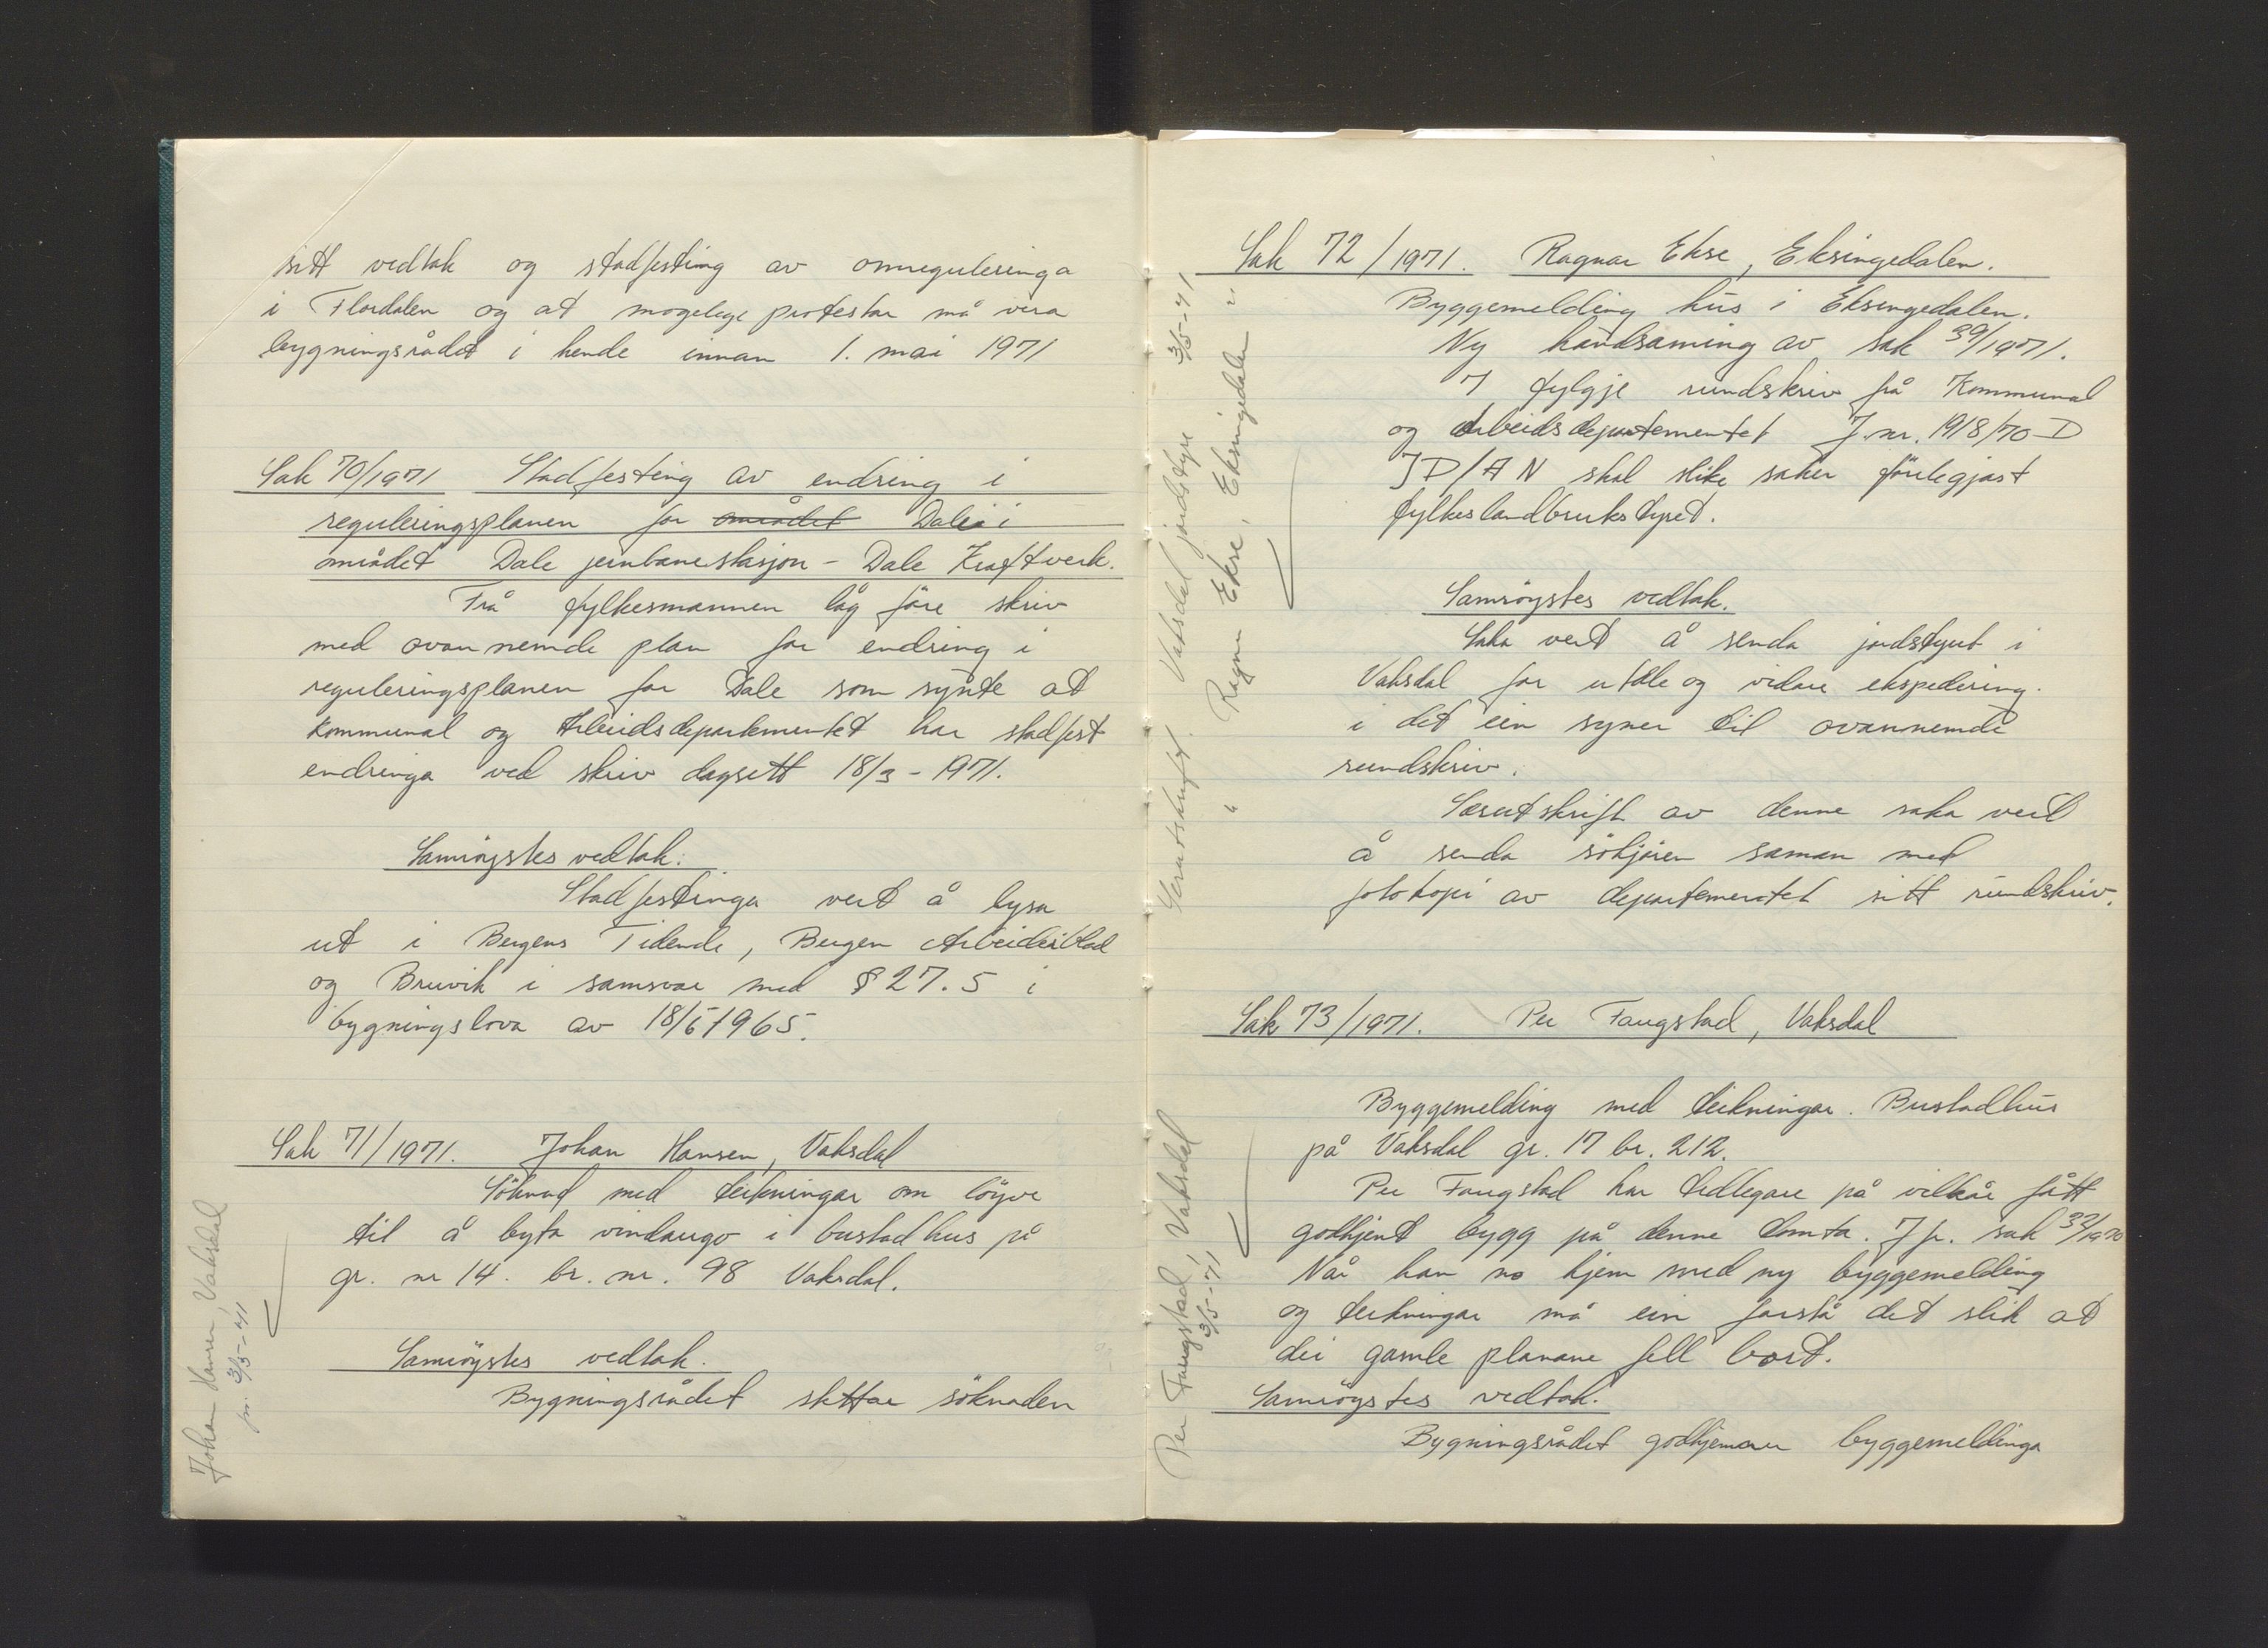 sitt vedtak og stadfesting av omreguleringa
i Flordalen og at mogelege protestar må vera
bygningsrådet i hende innan 1. mai 1971
Sak 70/1971 Stadfesting av endring i
reguleringsplanen for området Dale i
området Dale jernbanestasjon - Dale Kraftverk.
Frå fylkesmannen låg føre skriv
med ovannemde plan for endring i
reguleringsplanen for Dale som synte at
Kommunal og Arbeidsdepartementet har stadfest
endringa ved skriv dagsett 18/3 - 1971.
Samrøystes vedtak:
Stadfestinga vert å lysa
ut i Bergens Tidende, Bergen Arbeiderblad
og Bruvik i samsvar med § 27.5 i
bygningslova av 18/6 1965.
Sak 71/1971. Johan Hansen, Vaksdal
Söknad med teikningar om löyve
til å byta vindaugo i bustadhus på
gr. nr 14. br. nr. 98 Vaksdal.
Samröystes vedtak.
Bygningsrådet støttar söknaden
Johan Hansen, Vaksdal
3/5-71
Sak 72/1971. Ragnar Ekse, Eksingedalen.
Byggemelding hus i Eksingedalen.
Ny handsaming av sak 39/1971.
I fylgje rundskriv frå Kommunal
og Arbeidsdepartementet J.nr. 1918/70 D
JD/AN skal slike saker förelegjast
fylkeslandbrukstyret.
Samröystes vedtak.
Saka vert å senda jordstyret i
Vaksdal for uttale og vidare ekspedering.
i det ein syner til ovannemde
rundskriv.
Særutskrift av denne saka vert
å senda sökjaren saman med
fotokopi av departementet sitt rundskriv.
Særutskrift. Vaksdal jordstyre 3/5-71
" Ragnar Ekse, Eksingedalen "
Sak 73/1971. Per Fangstad, Vaksdal
Byggemelding med teikningar. Bustadhus
på Vaksdal gr. 17 br. 212.
Per Fangstad har tidlegare på vilkår fått
godkjent bygg på denne tomta. Jfr. sak 33/1970
Når han no kjem med ny byggemelding
og teikningar må ein forstå det slik at
dei gamle planane fell bort.
Samröystes vedtak.
Bygningsrådet godkjenner byggemeldinga
Per Fangstad, Vaksdal
3/5-71